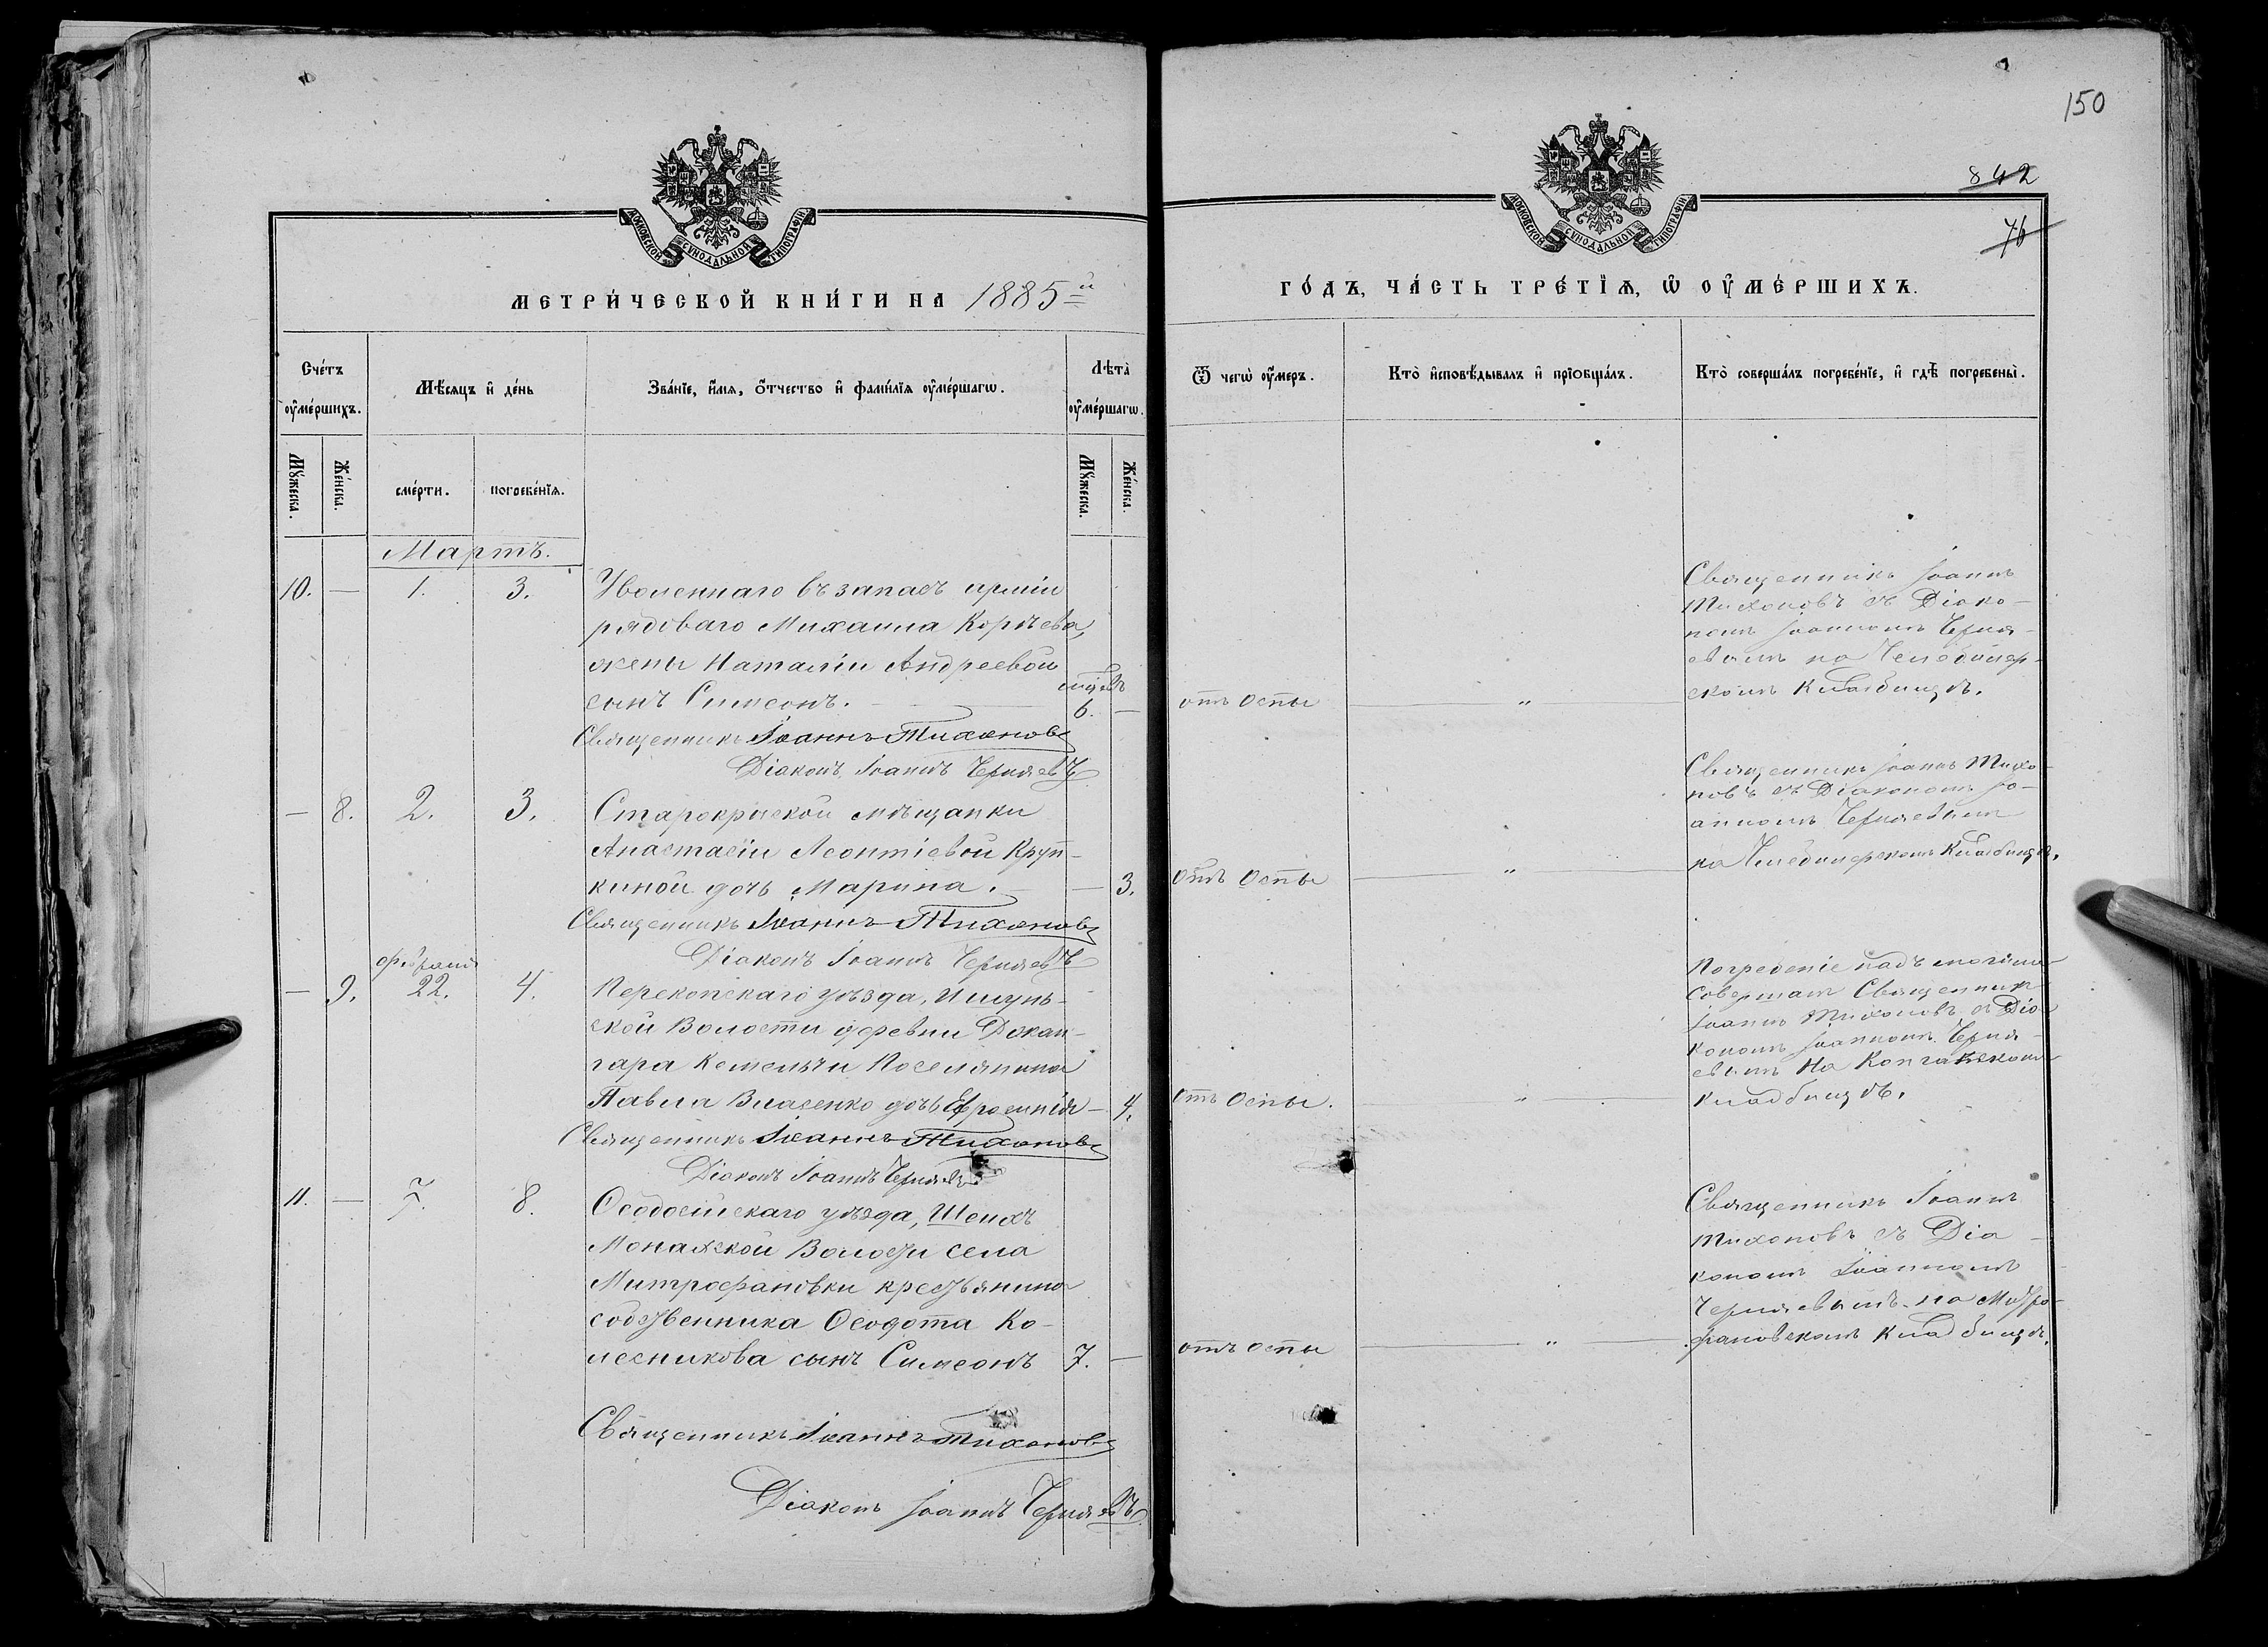 150
842
76
МОСКОВСКОЙ СѴНОДАЛЬНОЙ ТИПОГРАФІИ
МОСКОВСКОЙ СѴНОДАЛЬНОЙ ТИПОГРАФІИ
МЕТРИ́ЧЕСКОЙ КНИ́ГИ НА 1885й
ГО́ДЪ, ЧА́СТЬ ТРЕ́ТІѦ, Ѡ ОУМЕ́РШИХЪ.
Сче́тъ оумершихъ.
Мѣсяцъ и де́нь
Зва́ніе, имя, отчество и фами́лія оуме́ршагѡ.
Лѣта̀ оумершагѡ.
Ѿ чегѡ оумеръ.
Кто̀ исповѣдывалъ и пріобща́лъ.
Кто̀ соверша́лъ погребе́ніе, и гдѣ погребены̀.
Мꙋжеска.
Же́нска.
сме́рти.
погребе́нія.
Мꙋжеска.
Же́нска.
Мартъ.
10. — 1. 3.
Уволеннаго въ запасъ арміи
рядоваго Михаила Корчева,
жены Наталіи Андреевой
сынъ Симеонъ. 6. —
Священникъ Іоаннъ Тихоновъ
Діаконъ Іоаннъ Черняевъ
отъ оспы
"
Священникъ Іоаннъ
Тихоновъ съ Діако-
номъ Іоанномъ Черня-
евымъ на
скомъ кладбищѣ.
— 8. 2. 3.
Старокрымской мѣщанки
Анастасіи Леонтіевой Круп-
киной дочь Марина. — 3.
Священникъ Іоаннъ Тихоновъ
Діаконъ Іоаннъ Черняевъ
отъ оспы
"
Священникъ Іоаннъ Тихо-
новъ съ Діакономъ Іо-
анномъ Черняевымъ
на кладбищѣ.
февраля
— 9. 22. 4.
Перекопскаго уѣзда, Ишунь-
ской Волости деревни Джан-
гара Кемельчи Поселянина
Павла Власенко дочь Ефросинія — 4.
Священникъ Іоаннъ Тихоновъ
Діаконъ Іоаннъ Черняевъ
отъ оспы.
"
Погребеніе надъ могилою
совершалъ Священникъ
Іоаннъ Тихоновъ съ Діа-
кономъ Іоанномъ Черня-
евымъ на
кладбищѣ.
11. — 7. 8.
Ѳеодосійскаго уѣзда, Шейхъ
Монахской Волости села
Митрофановки крестьянина
собственника Ѳеодота Ко-
лесникова сынъ Симеонъ 7. —
Священникъ Іоаннъ Тихоновъ
Діаконъ Іоаннъ Черняевъ
отъ оспы
"
Священникъ Іоаннъ
Тихоновъ съ Діа-
кономъ Іоанномъ
Черняевымъ на Митро-
фановскомъ кладбищѣ.